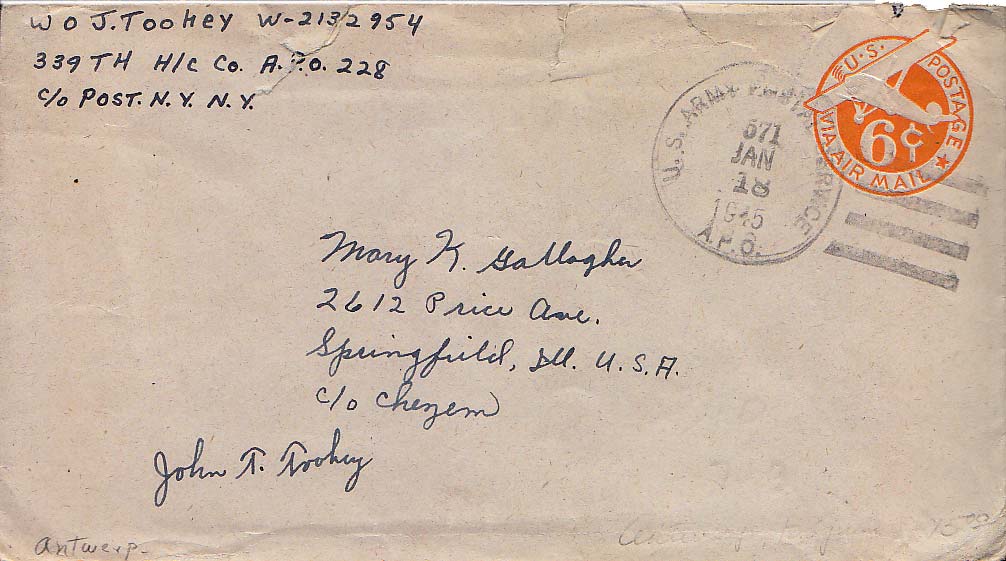 W O J. TOOHEY W-2132954
339TH H/C Co. A.P.O. 228
C/O POST. N.Y. N.Y.
U.S. POSTAGE
6¢
VIA AIR MAIL
U.S. ARMY POSTAL SERVICE
571
JAN
18
1945
A.P.O.
Mary K. Gallagher
2612 Price Ave.
Springfield, Ill. U.S.A.
c/o Chezem
John T. Toohey
Antwerp